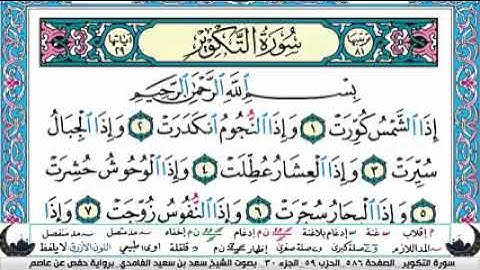 ترتيبها ٨١ سُورَةُ التَّكْوِيرِ آياتها ٢٩
بِسْمِ اللَّهِ الرَّحْمَٰنِ الرَّحِيمِ
إِذَا الشَّمْسُ كُوِّرَتْ ١ وَإِذَا النُّجُومُ انكَدَرَتْ ٢ وَإِذَا الْجِبَالُ
سُيِّرَتْ ٣ وَإِذَا الْعِشَارُ عُطِّلَتْ ٤ وَإِذَا الْوُحُوشُ حُشِرَتْ
٥ وَإِذَا الْبِحَارُ سُجِّرَتْ ٦ وَإِذَا النُّفُوسُ زُوِّجَتْ ٧ وَإِذَا
م إقلاب غنة إدغام بلاغنة ن م إدغام ن م إخفاء مد متصل مد منفصل
المد اللازم صلة كبرى صلة صغرى إظهار ن م قلقلة اوى طبيعي اللون الأزرق لا يلفظ
سورة التكوير _ الصفحة ٥٨٦ _ الحزب ٥٩ _ الجزء ٣٠ _ بصوت الشيخ سعد بن سعيد الغامدي _ برواية حفص عن عاصم